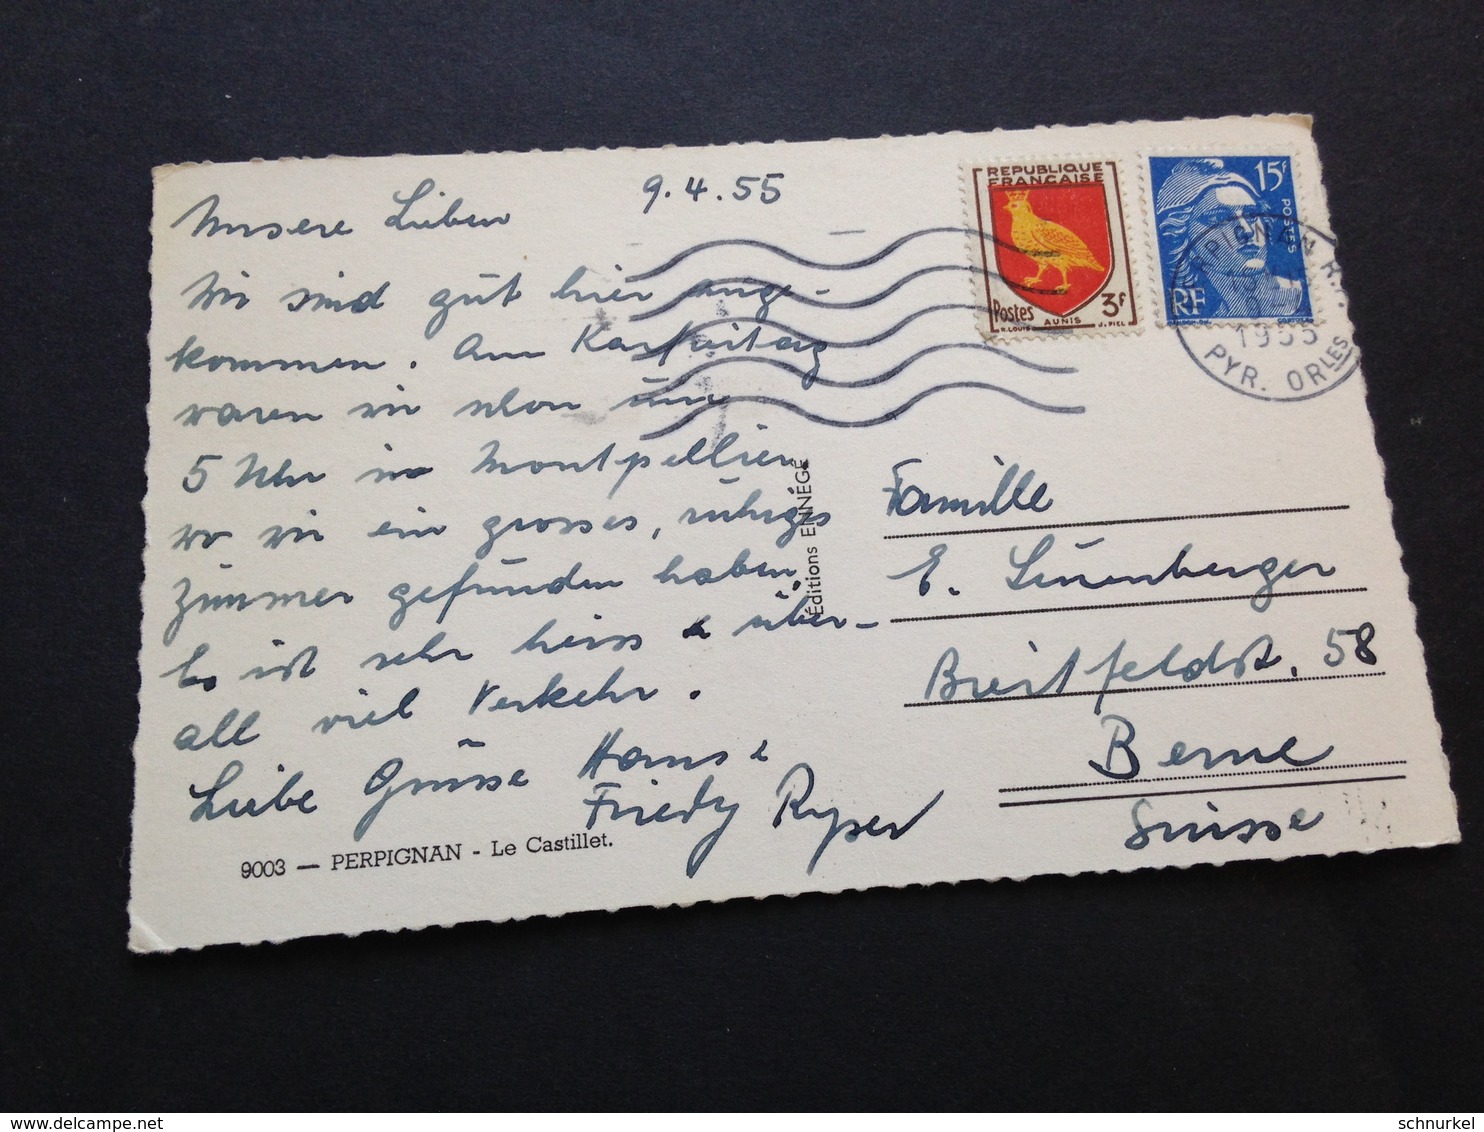 9.4.55
Unsere Lieben
Wir sind gut hier ange-
kommen. Am Karfreitag
waren wir schon um
5 Uhr in Montpellier
wo wir ein grosses, ruhiges
Zimmer gefunden haben.
Es ist sehr heiss & über-
all viel Verkehr.
Liebe Grüsse Hans &
Friedy Ryser
9003 — PERPIGNAN - Le Castillet.
Éditions ENNÉGÉ
REPUBLIQUE
FRANÇAISE
Postes 3F
AUNIS
R.LOUIS J.PIEL
15F
POSTES
RF
PERPIGNAN R.P.
1955
PYR. ORLES
Famille
E. Leuenberger
Breitfeldst. 58
Berne
Suisse
schnurkel